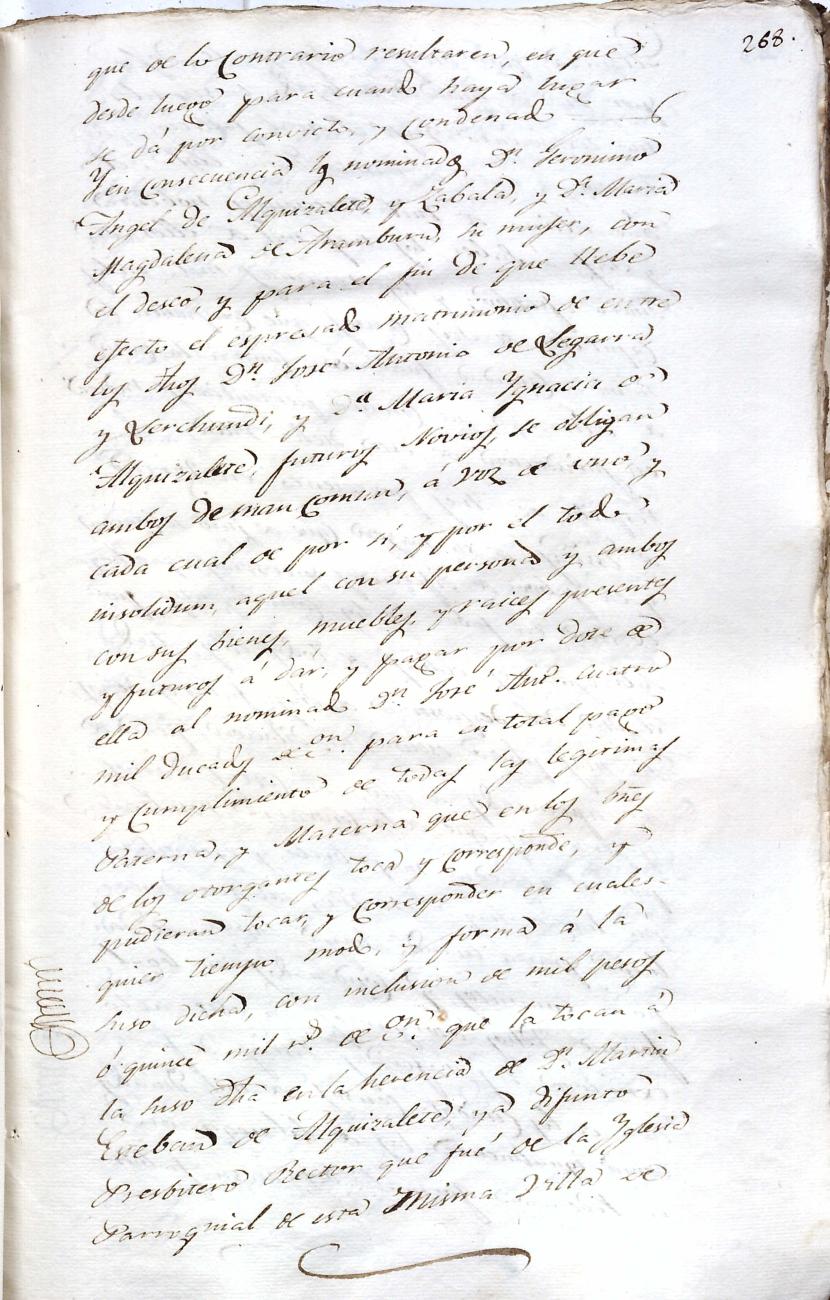 268.
que de lo Contrario resultaren, en que
desde luego para cuando haya lugar
se dá por convicto, y condenado
Y en Consecuencia los nominados Dn. Geronimo
Angel de Alquizalete, y Zabala, y Da. Maria
Magdalena de Aramburu, su muger, con
el deseo, y para el fin de que llebe
efecto el espresado matrimonio de entre
los dhos Dn. José Antonio de Legarra
y Lerchundi, y Da. Maria Ygnacia de
Alquizalete, futuros Novios, se obligan
ambos de man Comun, á voz de uno, y
cada cual de por sí, y por el todo
insolidum, aquel con su persona y ambos
con sus bienes, muebles, y raices presentes
y futuros á dar, y pagar por dote de
ella al nominado Dn. José Anto. cuatro
mil ducados de on. para en total pago
y Cumplimiento de todas las legitimas
Paterna, y Materna que en los bnes
de los otorgantes toca y Corresponde, y
pudieran tocar, y Corresponder en cuales-
quier tiempo modo, y forma á la
suso dicha, con inclusion de mil pesos
ó quince mil rs. de on. que la tocan á
la suso dha en la herencia de Dn. Martin
Esteban de Alquizalete, ya difunto
Presbitero Rector que fué de la Yglesia
Parroquial de esta Misma Villa de